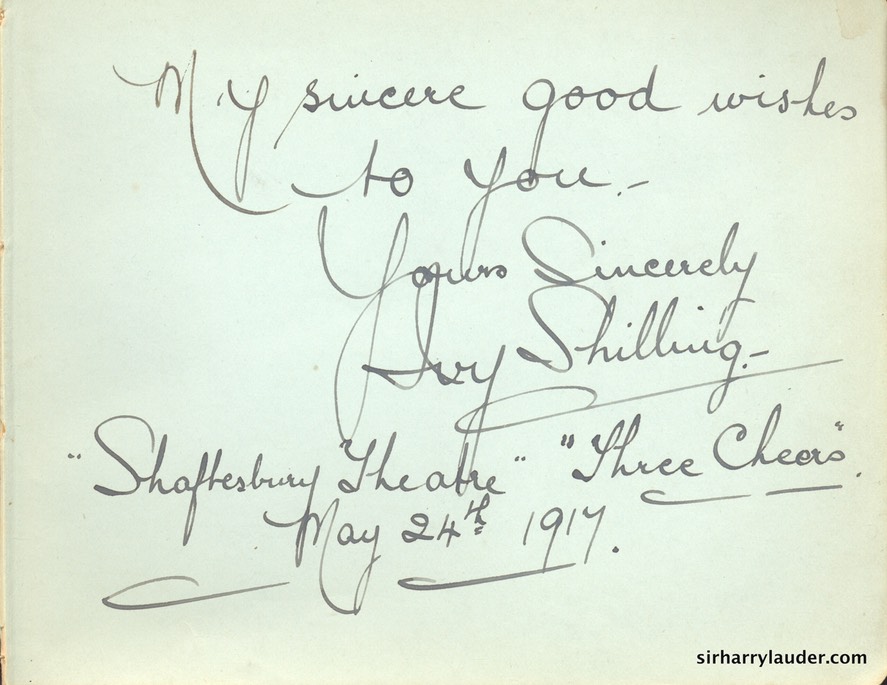 My sincere good wishes
to you.-
Yours Sincerely
Ivy Shilling.-
"Shaftesbury Theatre" "Three Cheers".
May 24th 1917.
sirharrylauder.com